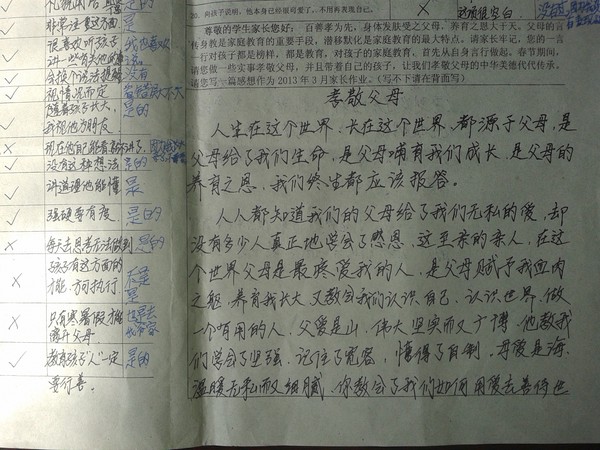 非常注重这方面 是的
很喜欢听孩子 我也喜欢
讲一些有关他的事
会换个话语提醒 没有
视情况而定
随着孩子长大, 是的
我视他为朋友
没有这种想法 是的
讲道理他能懂 是
强硬等有度 是的
每天去思考无法做到 是的
孩子有这方面的 不是
才能,方向执行 是
只有寒暑假才能
离开父母
教育孩子"人"一定 是的
要行善。
20. 向孩子说明,他本身已经很可爱了,不用再表现自己。
尊敬的学生家长您好:百善孝为先,身体发肤受之父母,养育之恩大于天,父母的言
传身教是家庭教育的重要手段,潜移默化是家庭教育的最大特点,请家长牢记,您的一言
一行对孩子都是榜样,都是教育,对孩子的家庭教育,首先从自身言行做起,春节期间,
请您做一些实事孝敬父母,并且带着自己的孩子,让我们孝敬父母的中华美德代代传承,
请您写一篇感想作为 2013 年 3 月家长作业。(写不下请在背面写)
孝敬父母
人生在这个世界,长在这个世界,都源于父母,是
父母给了我们生命,是父母哺育我们成长,是父母的
养育之恩,我们终生都应该报答。
人人都知道我们的父母给了我们无私的爱,却
没有多少人真正地学会了感恩,这至亲的亲人,在这
个世界父母是最疼爱我的人,是父母赋予我血肉
之躯,养育我长大,又教会我们认识自己,认识世界,做
一个有用的人,父爱是山,伟大坚实而又广博,他教我
们学会了坚强,记住了宽容,懂得了自制,母爱是海,
温暖无私而又细腻,你教会了我们如何用爱去善待世